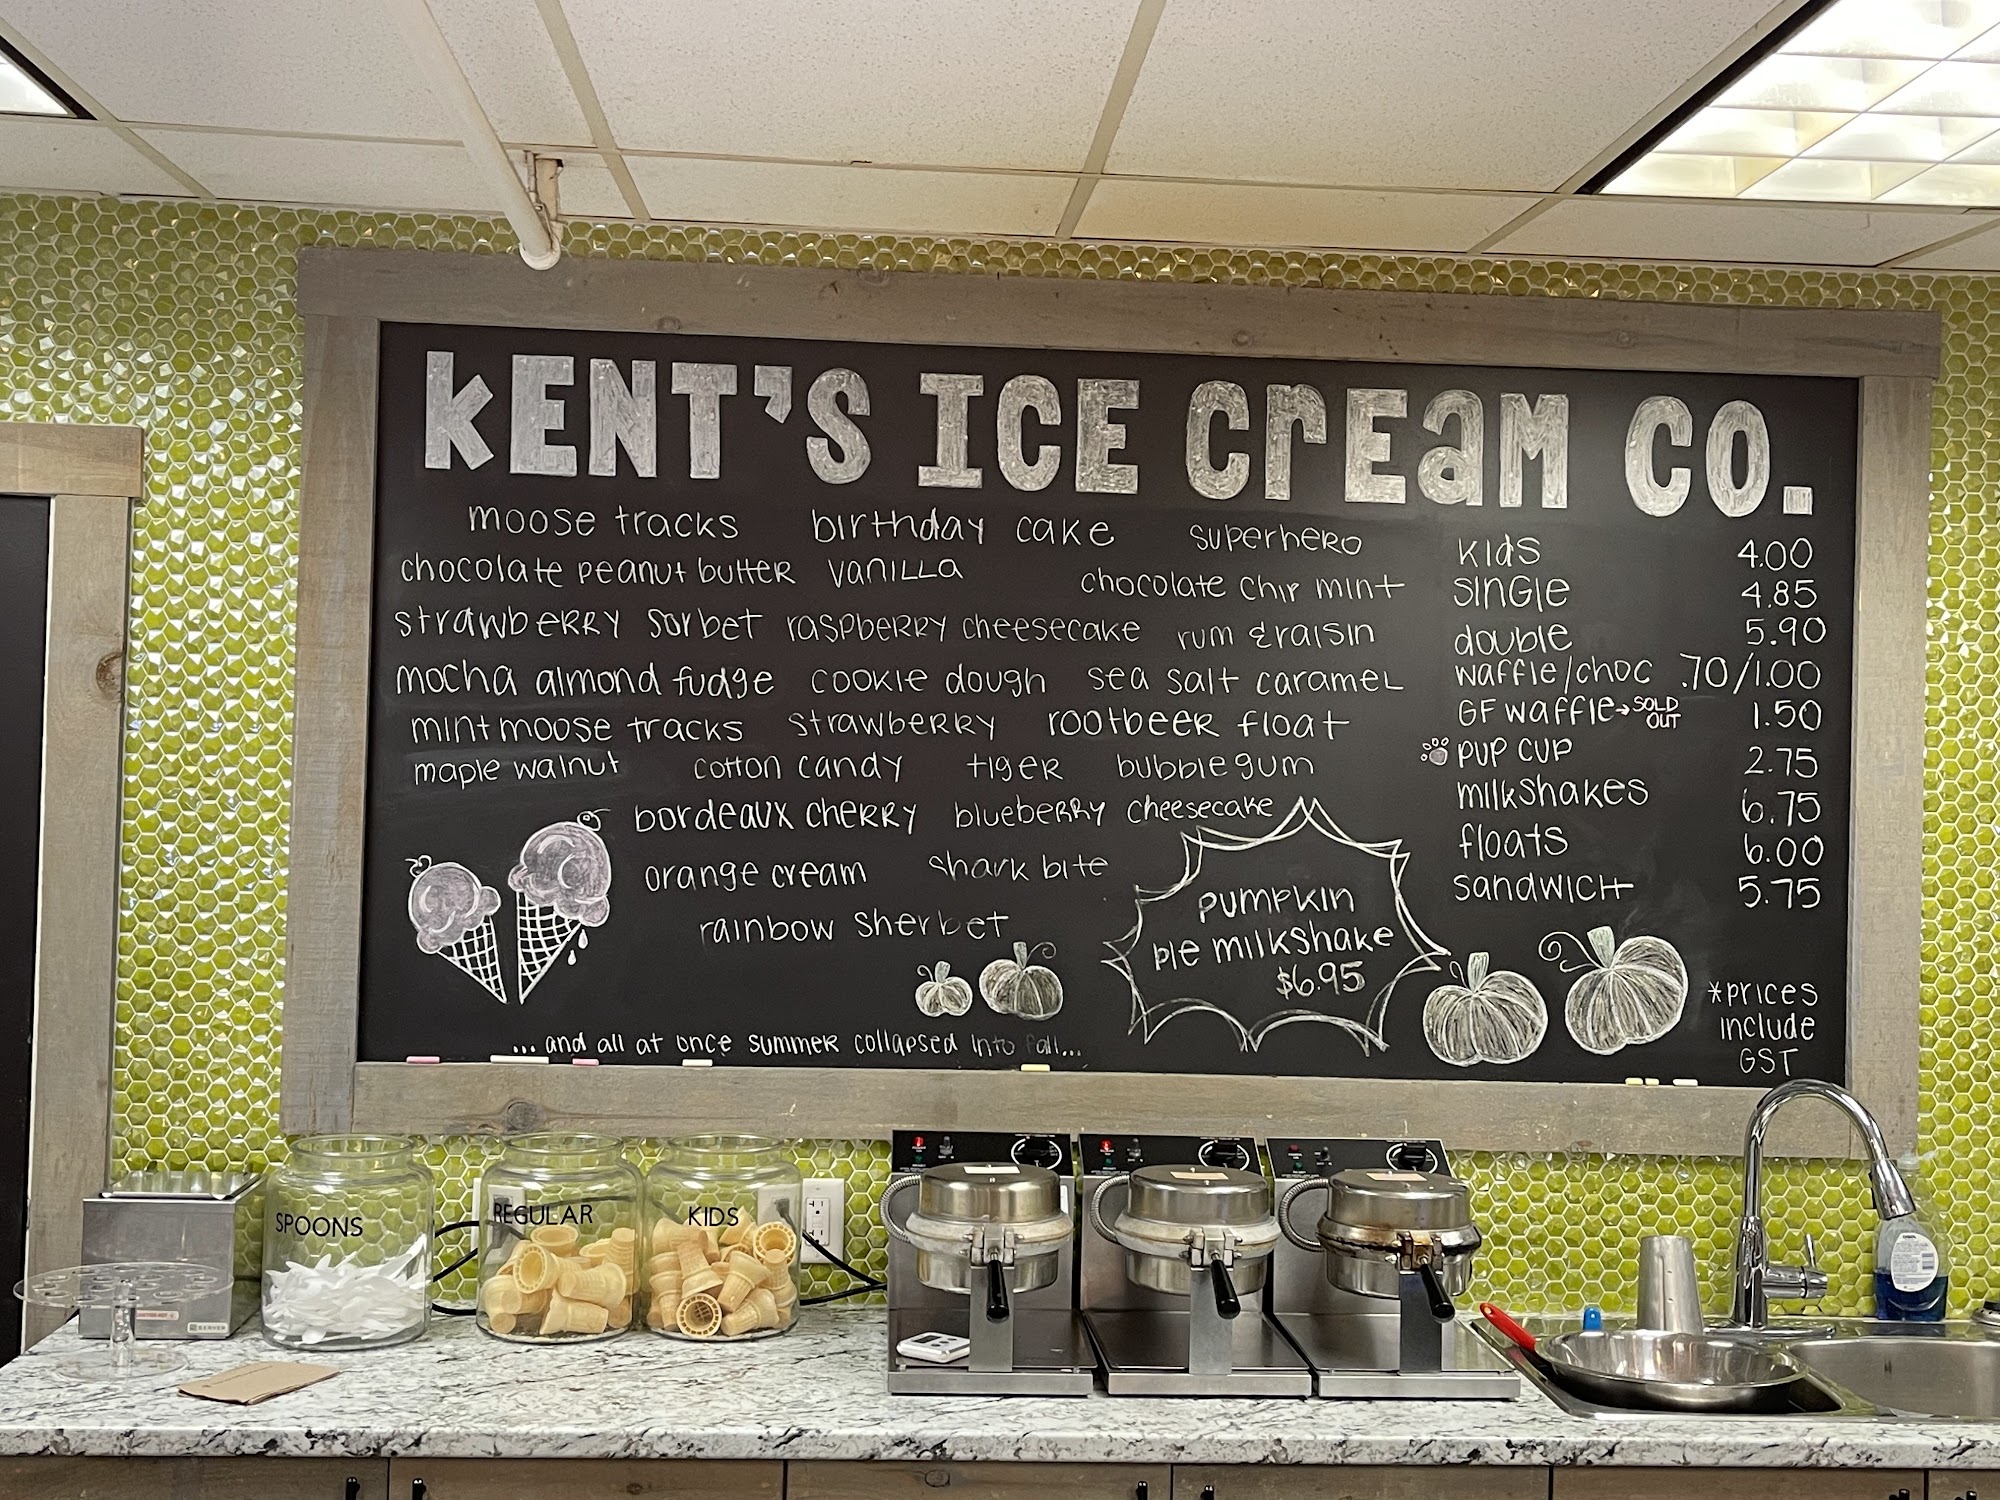 kENT'S ICE CrEaM CO.
moose tracks birthday cake superhero
chocolate peanut butter vanilla chocolate chip mint
strawberry sorbet raspberry cheesecake rum & raisin
mocha almond fudge cookie dough sea salt caramel
mint moose tracks strawberry rootbeer float
maple walnut cotton candy tiger bubblegum
bordeaux cherry blueberry cheesecake
orange cream shark bite
rainbow sherbet
kids 4.00
single 4.85
double 5.90
waffle/choc .70/1.00
GF waffle→ SOLD OUT 1.50
pup cup 2.75
milkshakes 6.75
floats 6.00
sandwich 5.75
pumpkin
pie milkshake
$6.95
*prices
include
GST
... and all at once summer collapsed into fall...
SPOONS
REGULAR
KIDS
SERVER